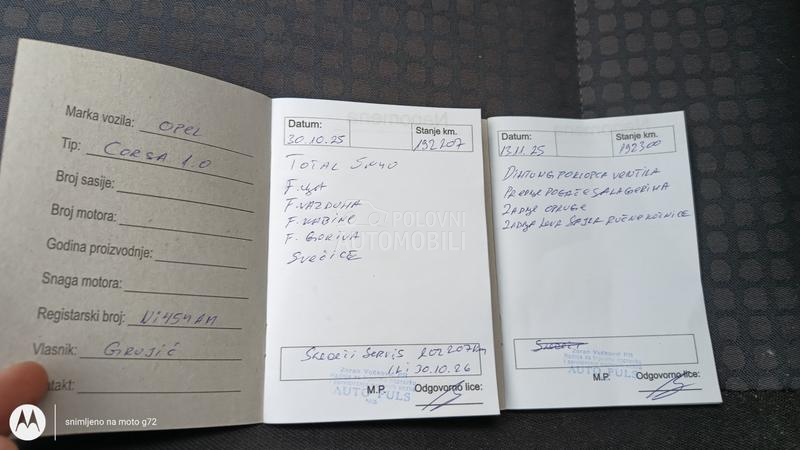 Marka vozila: OPEL
Tip: CORSA 1.0
Broj sasije:
Broj motora:
Godina proizvodnje:
Snaga motora:
Registarski broj: Ni454AM
Vlasnik: GRUJIĆ
takt:
Datum:
30.10.25
Stanje km.
192207
TOTAL 5W40
F. ULJA
F. VAZDUHA
F. KABINE
F. GORIVA
SVEĆICE
POLOVNI
AUTOMOBILI
SLEDEĆI SERVIS 202207km
ILI 30.10.26
Zoran Vučković PR
AUTO PULS
M.P.
Odgovorno lice:
Napomena
Datum:
13.11.25
Stanje km.
192300
DIHTUNG POKLOPCA VENTILA
PREDNJE POGAČE SA LAGERIMA
ZADNJE OPRUGE
ZADNJA LEVA SAJLA RUČNE KOČNICE
Zoran Vučković PR
AUTO PULS
M.P.
Odgovorno lice:
snimljeno na moto g72